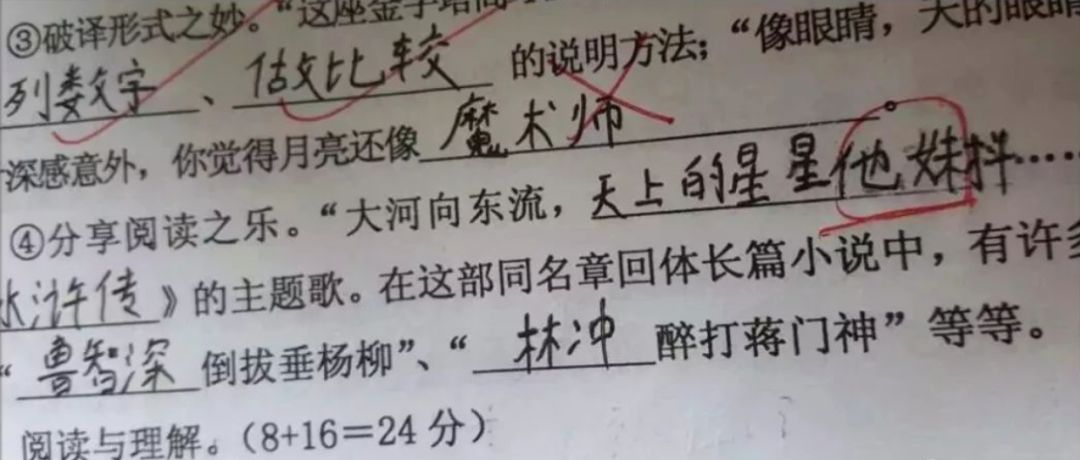 ③破译形式之妙。“这座金字塔高
列数字、作比较的说明方法；“像眼睛，天的眼睛
深感意外，你觉得月亮还像魔术师。
④分享阅读之乐。“大河向东流，天上的星星他妹抖……
水浒传》的主题歌。在这部同名章回体长篇小说中，有许多
“鲁智深倒拔垂杨柳”、“林冲醉打蒋门神”等等。
阅读与理解。（8+16＝24分）